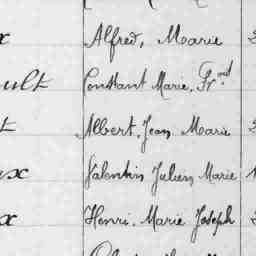 x Alfred, Marie
ult Constant Marie, Frnd
t Albert, Jean Marie
ux Valentin Julien Marie
x Henri, Marie Joseph